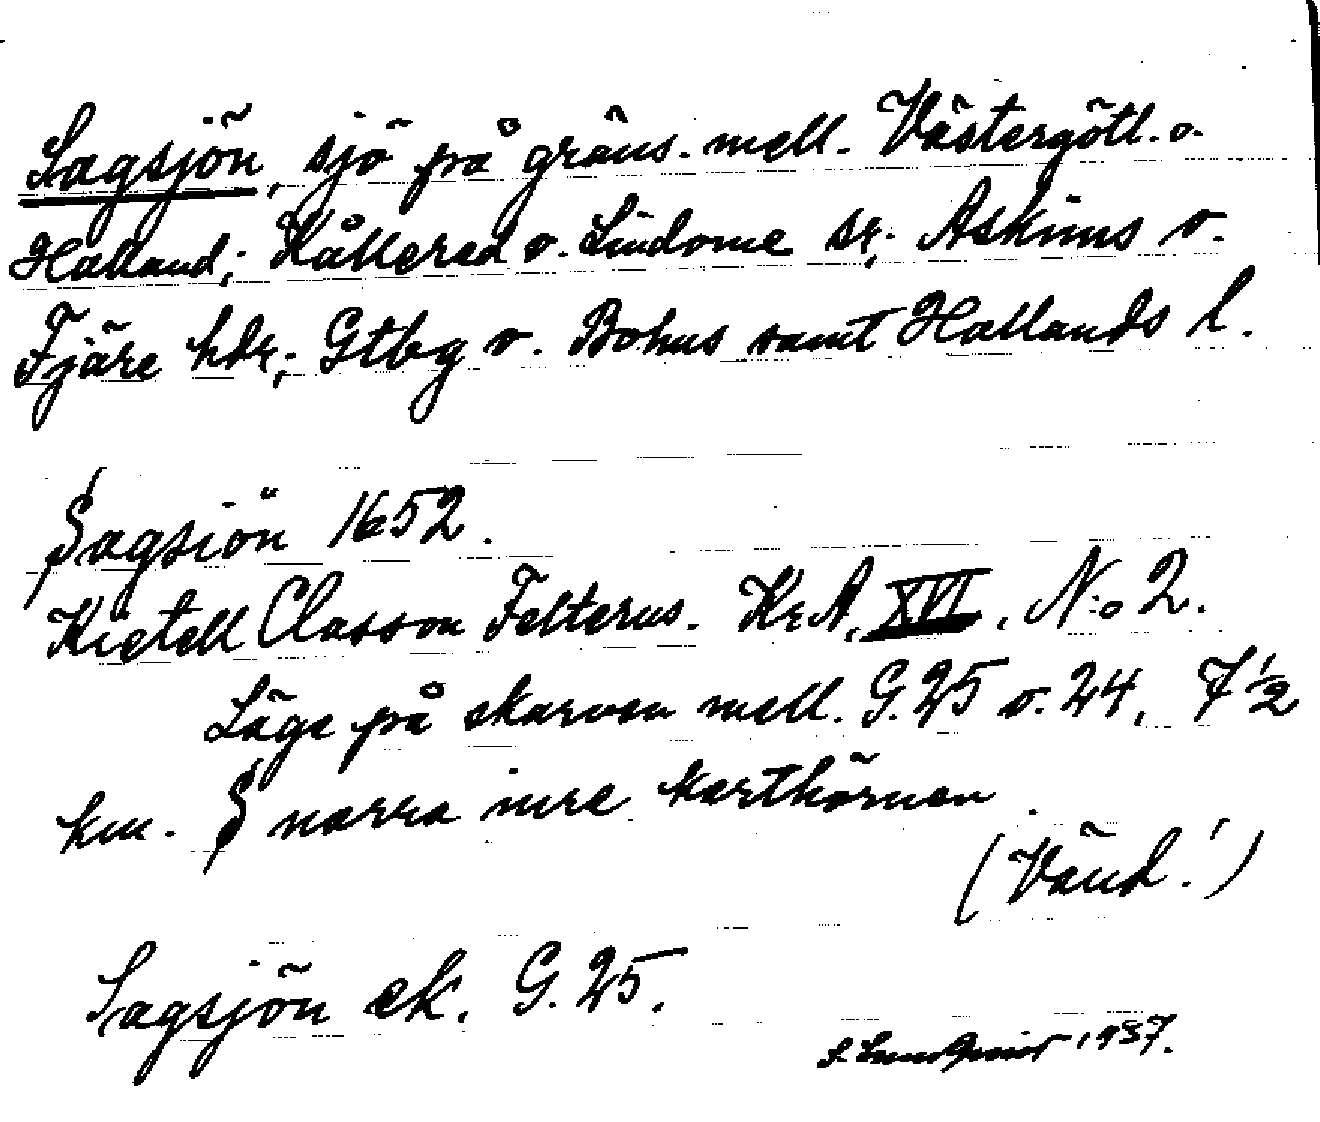 Sagsjön, sjö på gräns. mell. Västergötl. o.
Halland; Kållered o. Lindome sr; Askims o.
Fjäre hdr; Gtbg o. Bohus samt Hallands l.
Sagsiön 1652.
Kietell Classon Felterus. Kr.A. XVI. N:o 2.
Läge på skarven mell. G.25 o. 24, 7 1/2
km. S norra inre karthörnen.
(Vänd!)
Sagsjön ek. G. 25.
1937.